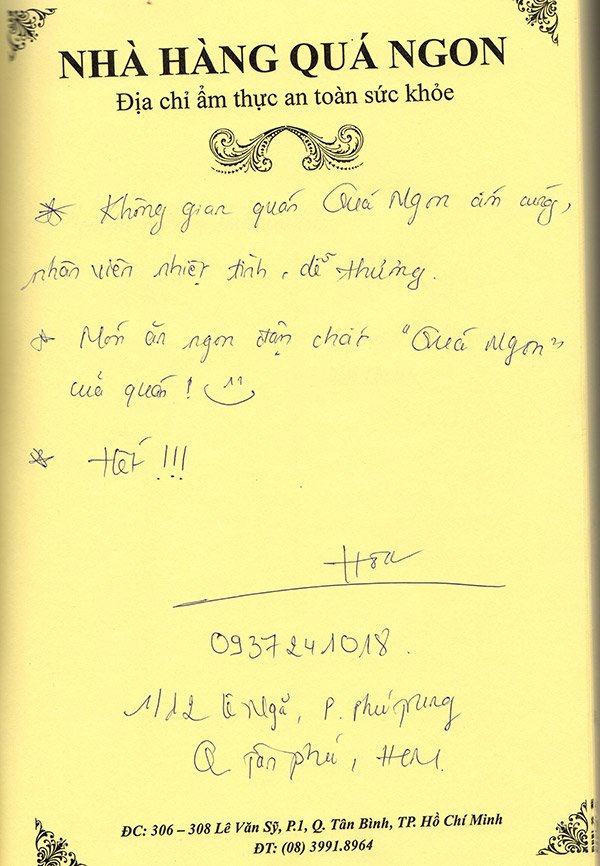 NHÀ HÀNG QUÁ NGON
Địa chỉ ẩm thực an toàn sức khỏe
* Không gian quán Quá Ngon ấm cúng,
nhân viên nhiệt tình, dễ thương.
* Món ăn ngon đậm chất "Quá Ngon"
của quán!
* Hết!!!
Hoa
0937241018.
Lê Ngã, P. Phú Trung
Q Tân Phú, HCM.
ĐC: 306 – 308 Lê Văn Sỹ, P.1, Q. Tân Bình, TP. Hồ Chí Minh
ĐT: (08) 3991.8964